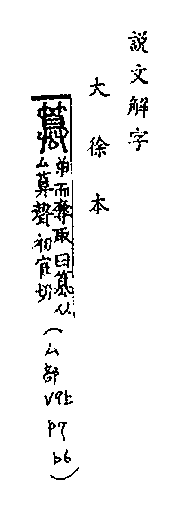 説文解字
大徐本
篡 屰而奪取曰篡从
厶算聲初官切
(厶部 V9上 P7 b6)